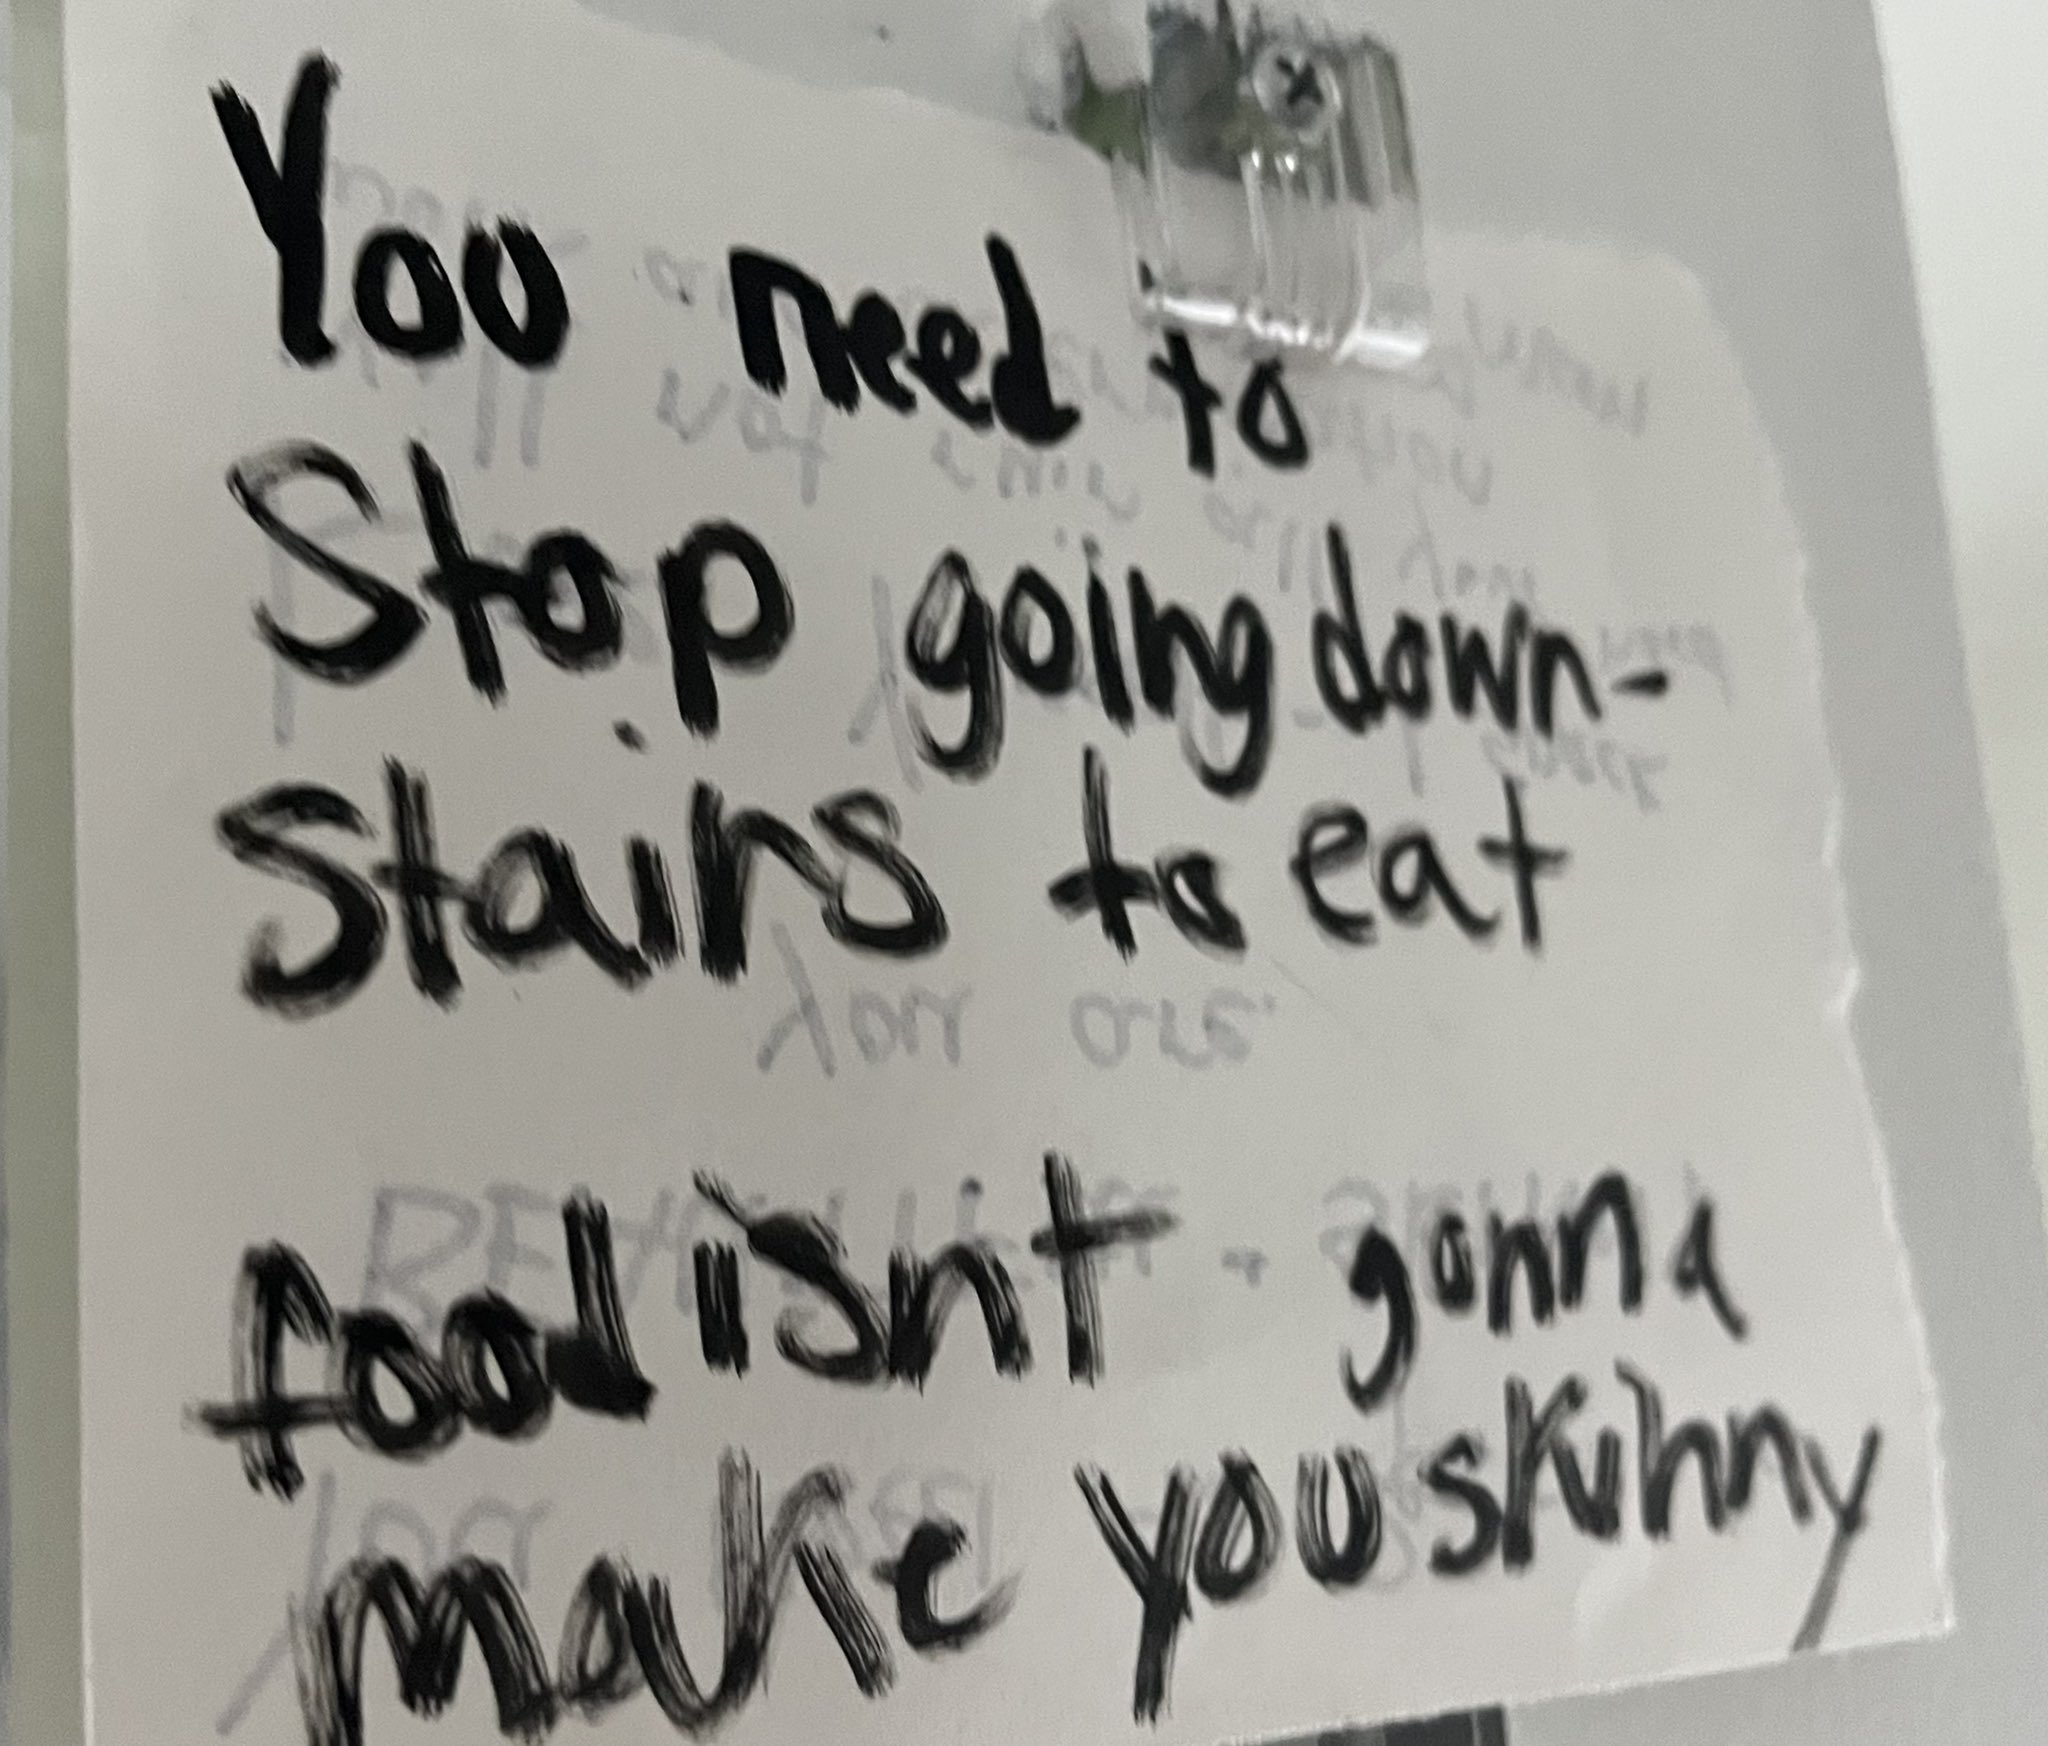 You need to
Stop going down-
Stairs to eat
You are.
food isnt gonna
make you skinny